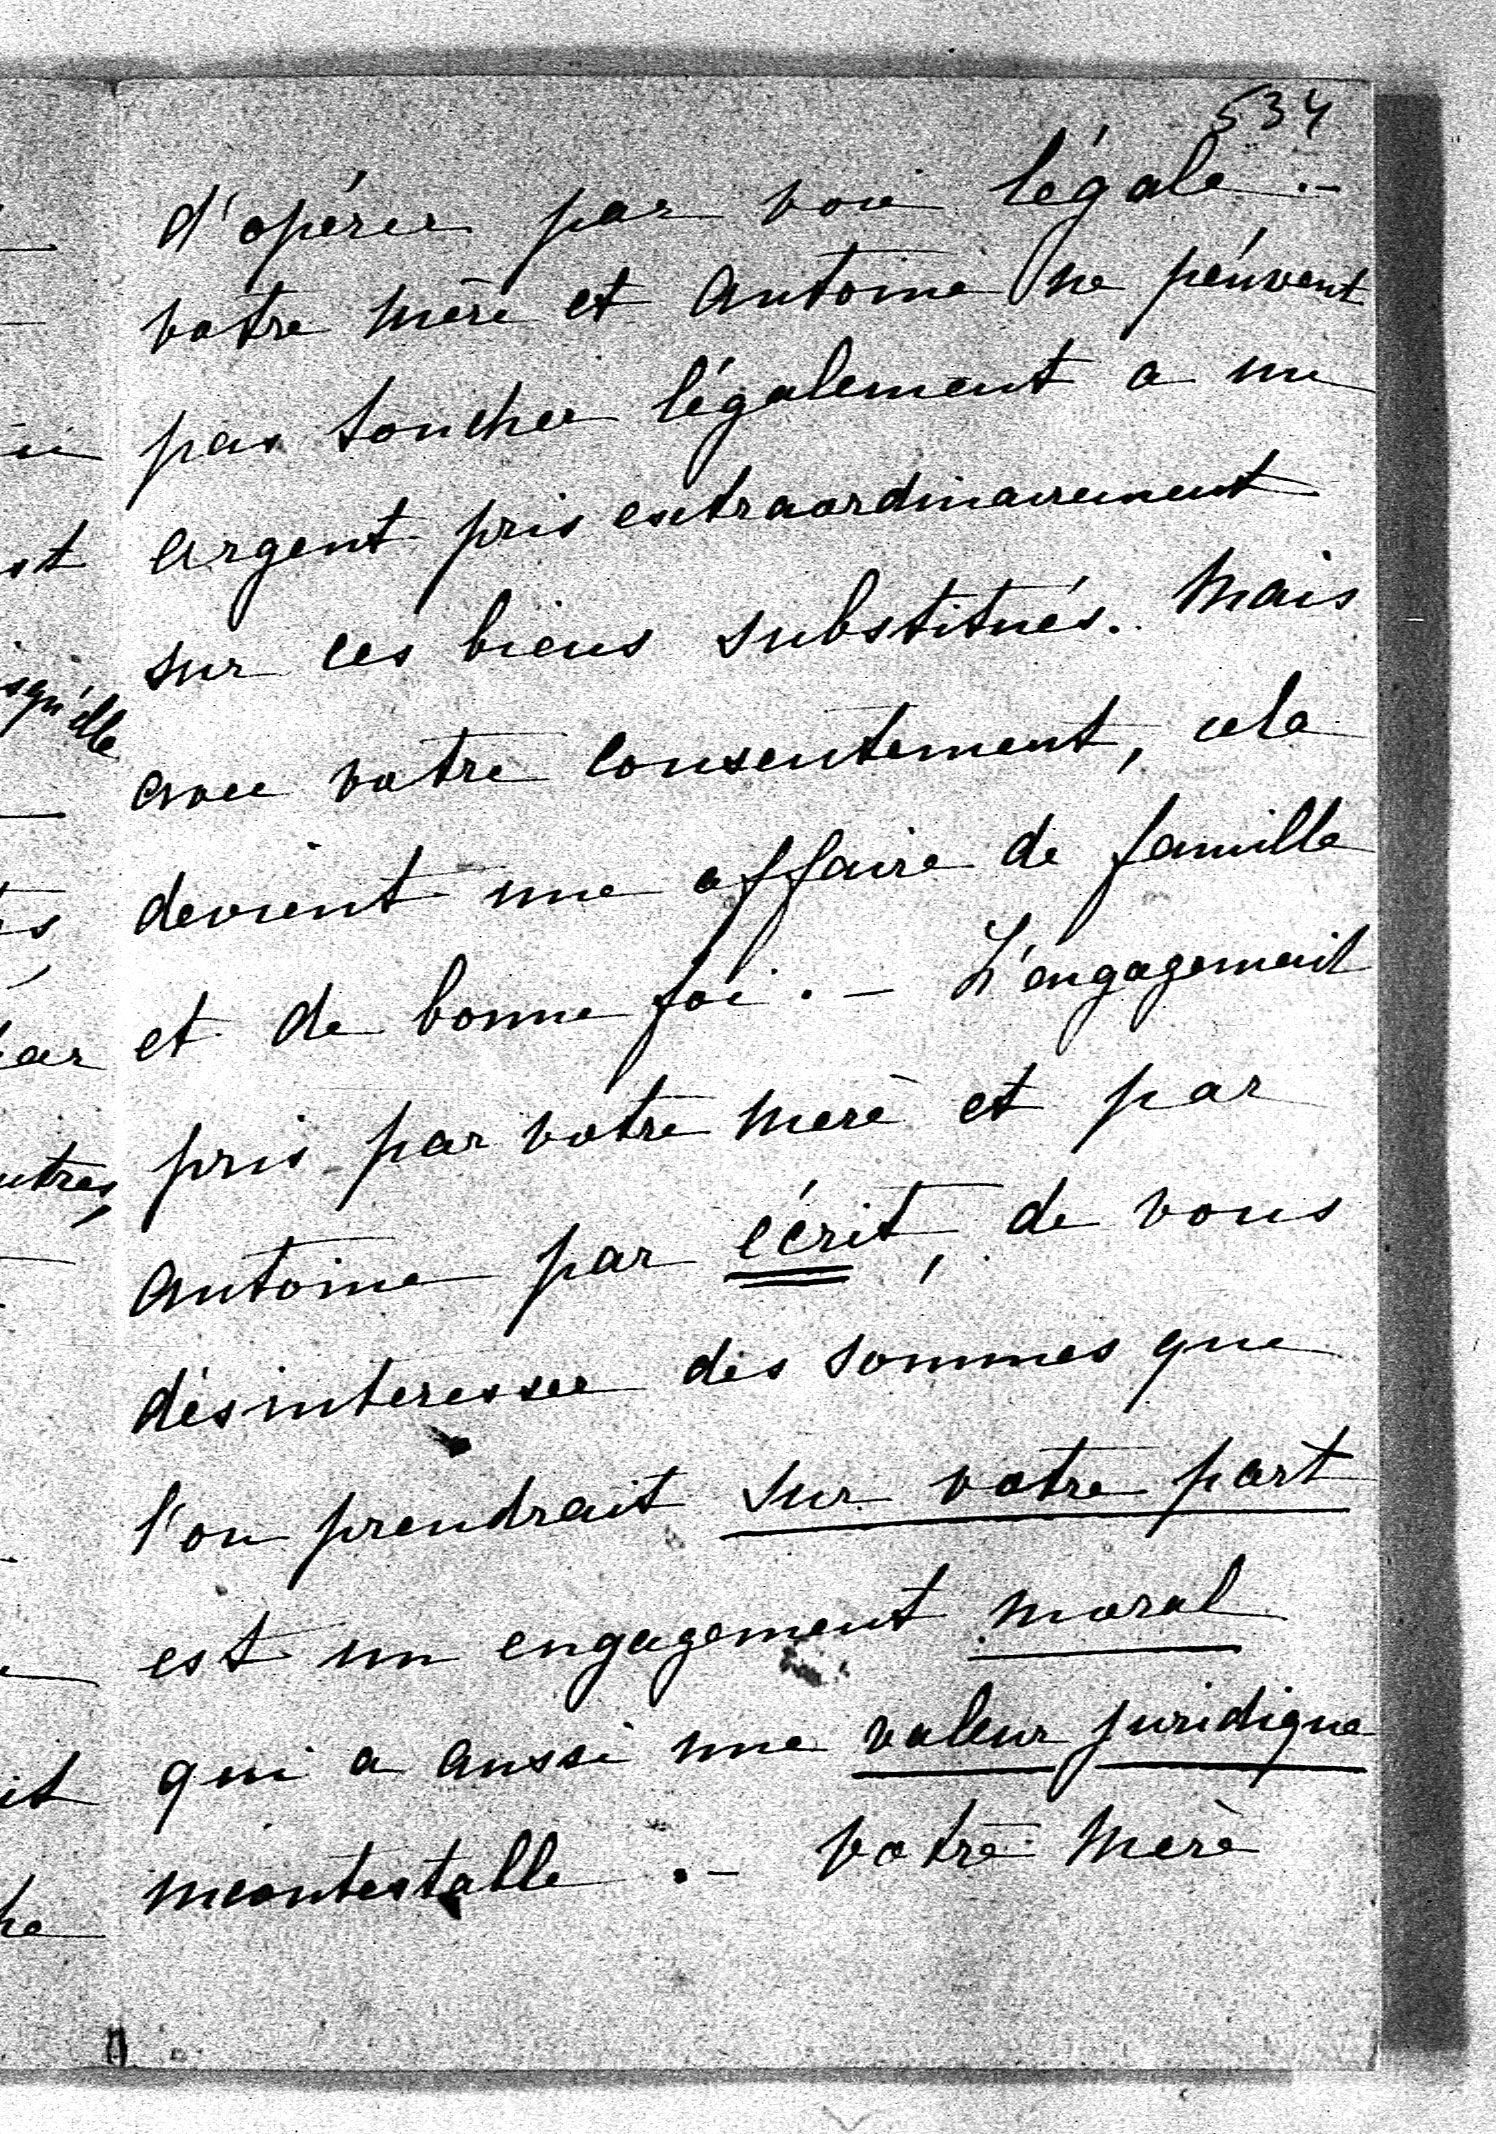 534
d'opérer par voie légale.-
votre mère et Antoine ne peuvent
pas toucher légalement a un
argent pris extraordinairement
sur ces biens substitués. Mais
avec votre consentement, cela
devient une affaire de famille
et de bonne foi. - L'engagement
pris par votre mère et par
Antoine par écrit, de vous
désinteresser des sommes que
l'on prendrait sur votre part
est un engagement moral
qui a aussi une valeur juridique
incontestable .- votre mère